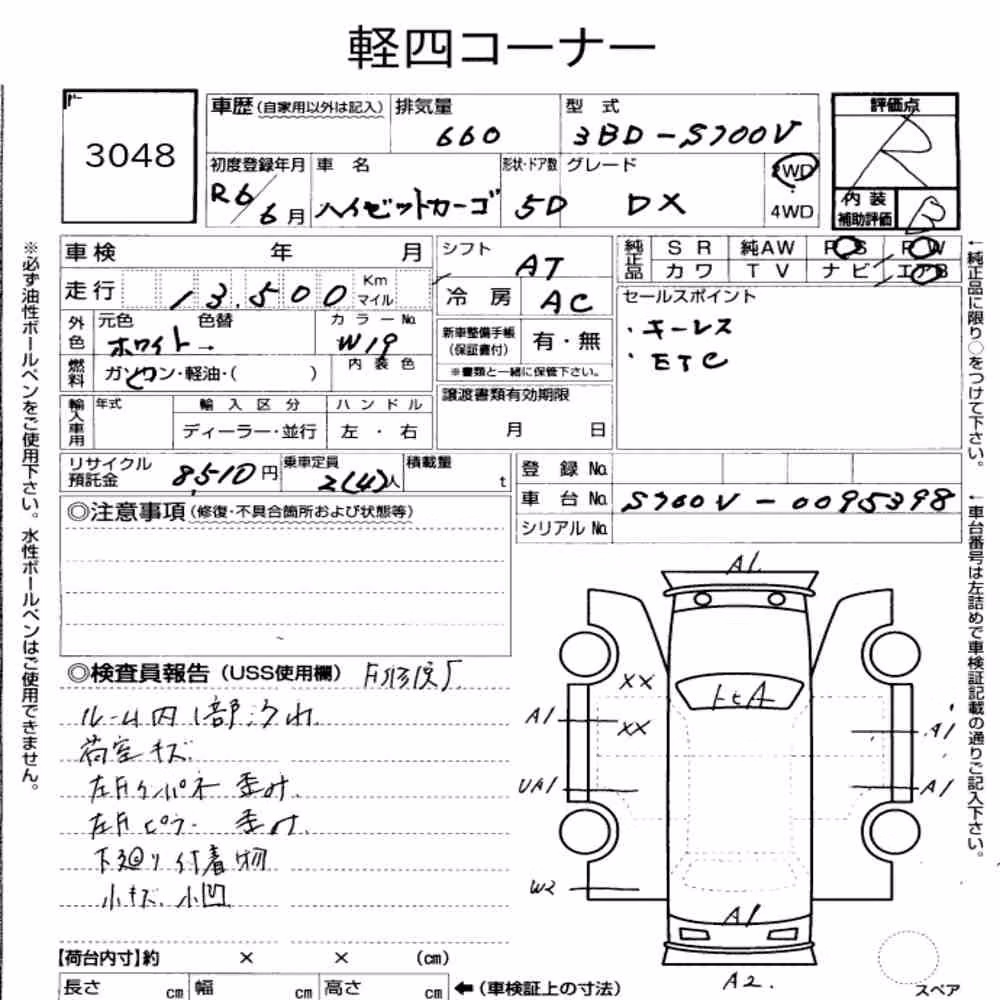 軽四コーナー
3048
車歴 (自家用以外は記入) 排気量 型式 評価点
660 3BD-S700V R
初度登録年月 車名 形状・ドア数 グレード 2WD
R6/6月 ハイゼットカーゴ 5D DX 4WD
内装補助評価 B
車検 年 月 シフト AT
純正品 SR 純AW PS PW
カワ TV ナビ エアB
走行 13,500 Km マイル
冷房 AC
セールスポイント
・キーレス
・ETC
外色 元色 色替 カラーNo.
ホワイト→ W19
新車整備手帳(保証書付) 有・無
※書類と一緒に保管下さい。
燃料 ガソリン・軽油・( ) 内装色
輸入車用 年式 輸入区分 ハンドル
ディーラー・並行 左・右
譲渡書類有効期限
月 日
リサイクル預託金 8,510円 乗車定員 2(4)人 積載量 t
登録No.
車台No. S700V-0095398
シリアルNo.
◎注意事項 (修復・不具合箇所および状態等)
◎検査員報告 (USS使用欄)
ルーム内1部汚れ
荷室キズ
歪み
歪み
下廻り付着物
小キズ、小凹
A1
XX
A1 XX A1
UA1 A1
W2
A1
A2.
スペア
【荷台内寸】約 × × (cm)
長さ cm 幅 cm 高さ cm ←(車検証上の寸法)
※必ず油性ボールペンをご使用下さい。水性ボールペンはご使用できません。
←純正品に限り○をつけて下さい。
←車台番号は左詰めで車検証記載の通りご記入下さい。